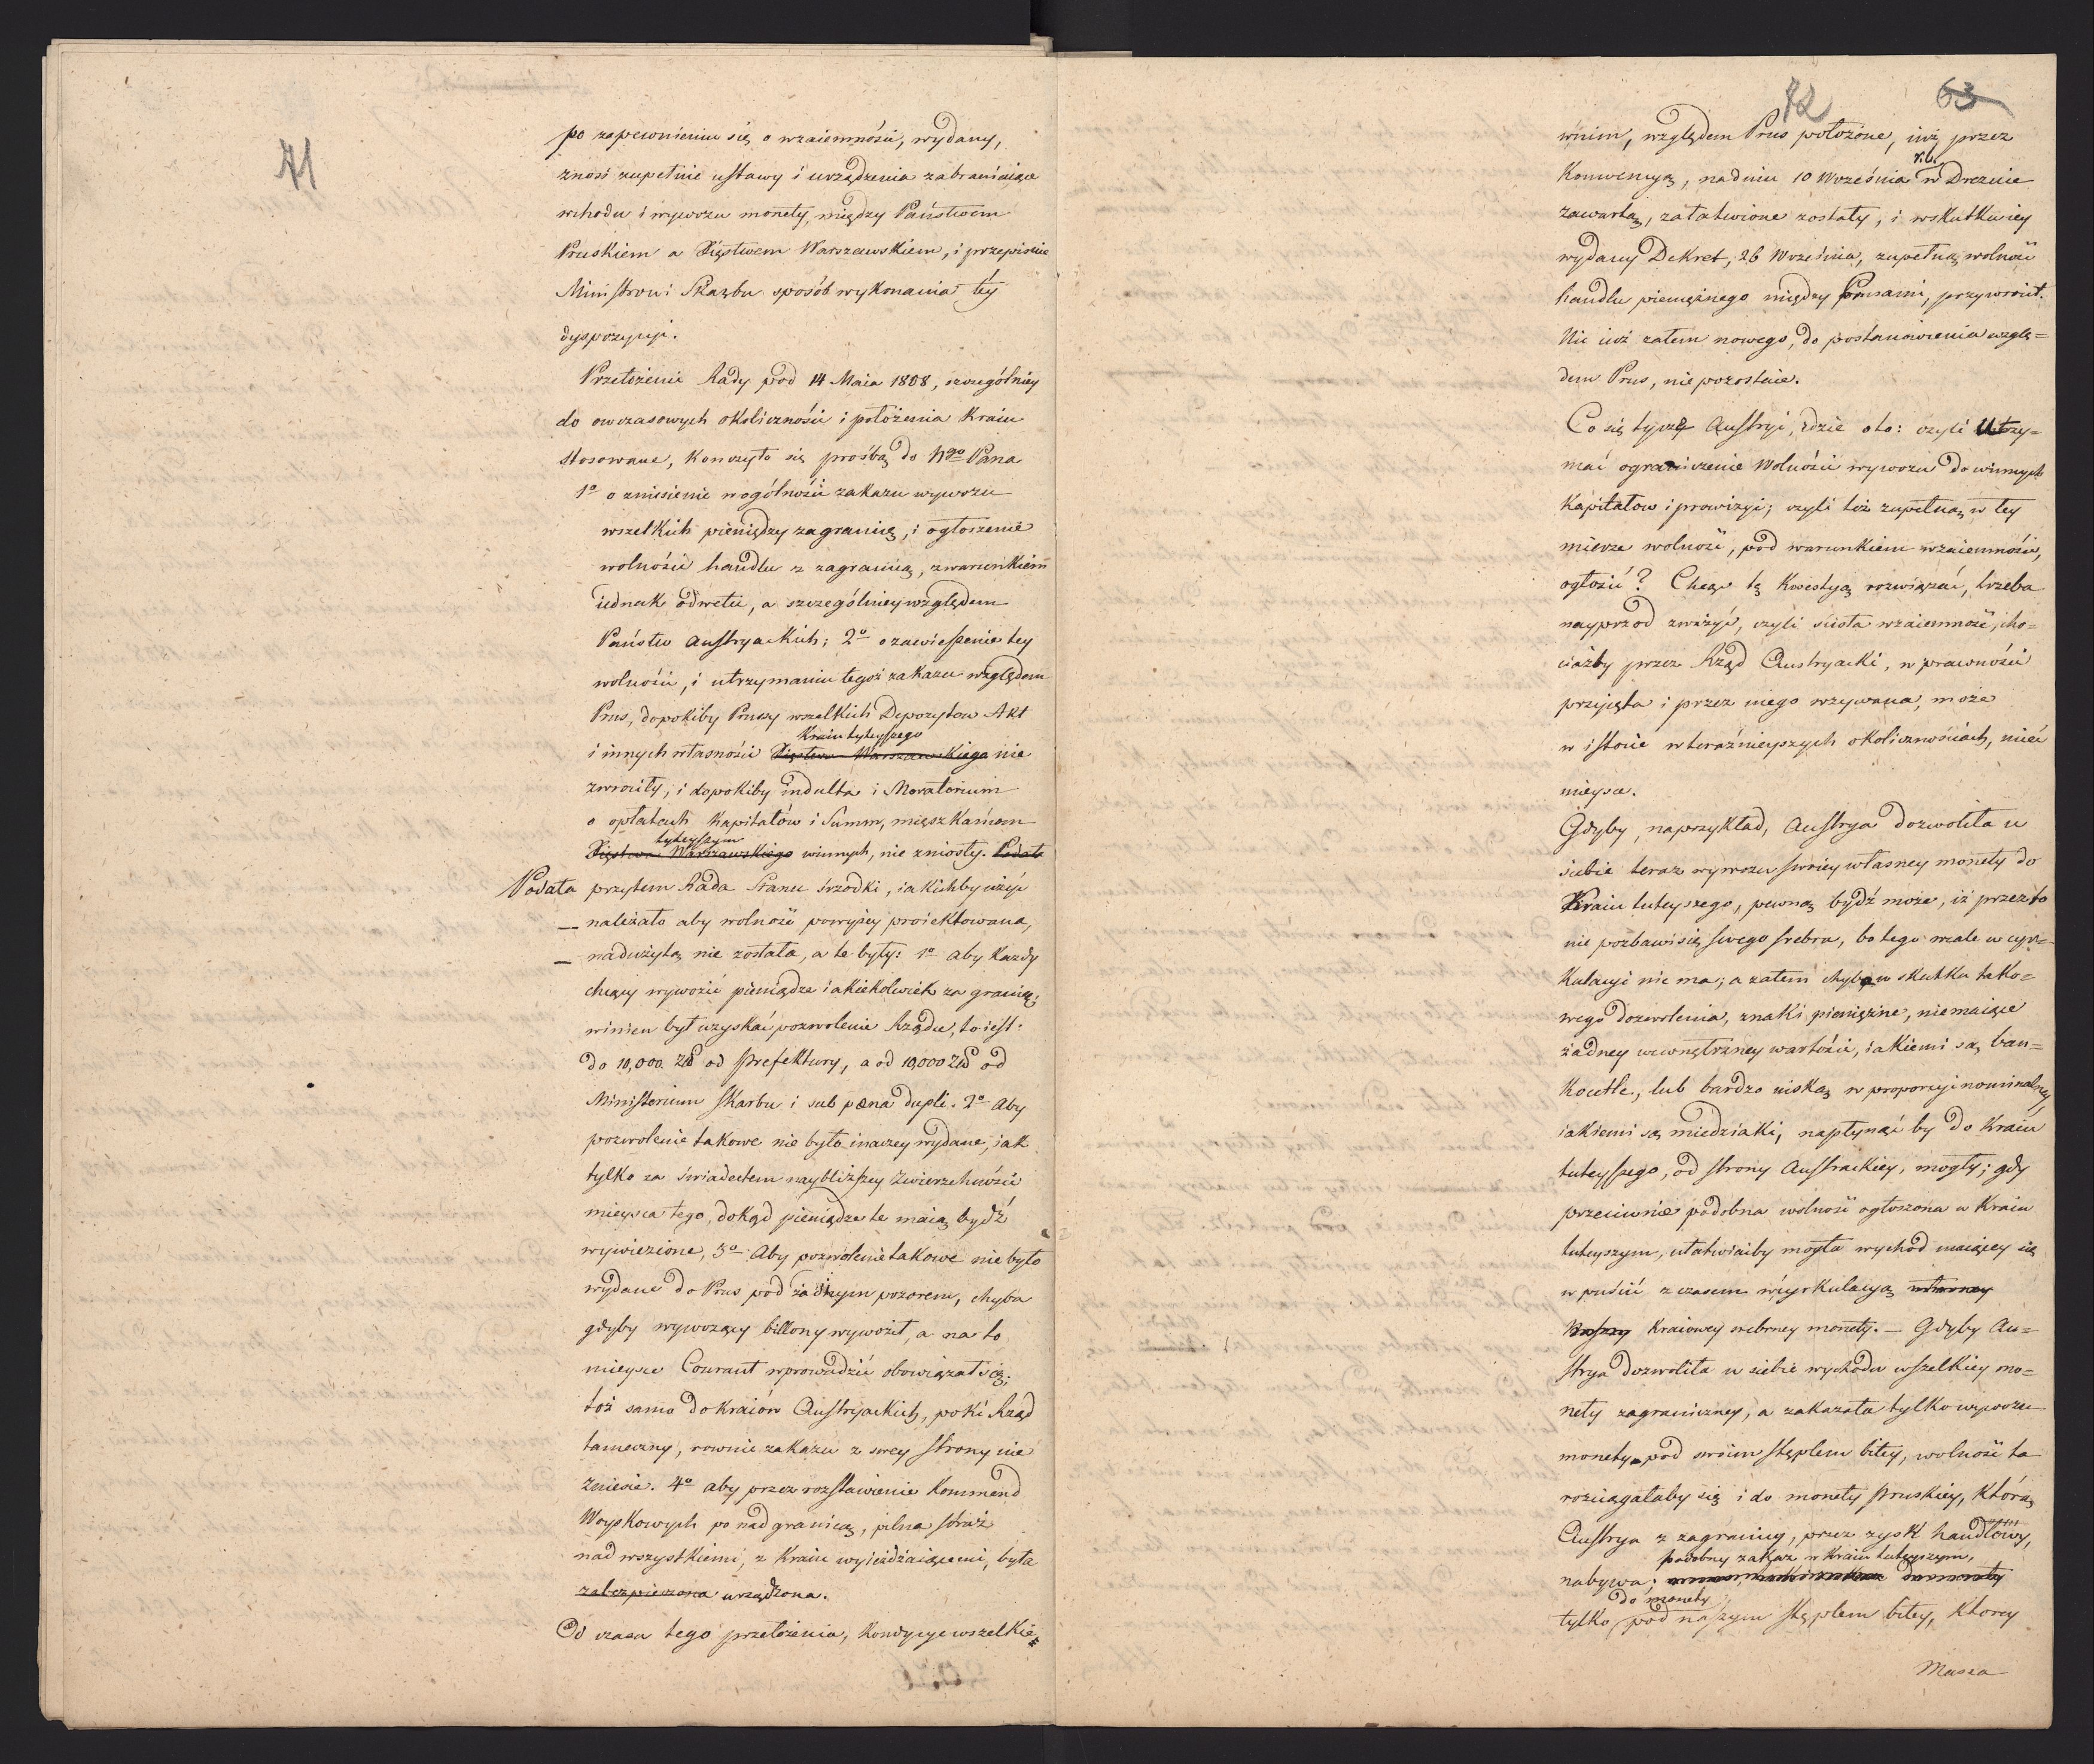 71
po zapewnieniu się o wzaiemności, wydany,
znosi zupełnie ustawy i urządzenia zabraniaiące
wchodu i wywozu monety, między Państwem
Pruskiem a Xięstwem Warszawskiem, i przepisuie
Ministrowi Skarbu sposób wykonania téy
dyspozycyi.
Przełożenie Rady pod 14 Maia 1808, szczególniey
do owczasowych okoliczności i położenia Kraiu
stosowane, Kończyło się prośbą do Ngo Pana
1o o zniesienie w ogólności zakazu wywozu
wszelkich pieniędzy zagranicę, i ogłoszenie
wolności handlu z zagranicą, z warunkiem
iednak odwetu, a szczególniey względem
Państw Austryackich; 2o o zawieszenie tey
wolności, i utrzymaniu tegoż zakazu względem
Prus, dopokiby Prusy wszelkich Depozytow Akt
Kraiu tuteyszego
i innych własności Xięstwa Warszawskiego nie
zwrociły, i dopokiby indulta i Moratorium
o opłatach Kapitałów i Summ, mięszkańcom
tuteyszym
Xięstwa Warszawskiego winnych, nie zniosły. Podała
Podała przytem Rada Stanu śrzodki, iakichby użyć
— należało aby wolność powyżey proiektowana,
— nadużytą nie została, a te były: 1o aby Każdy
chcący wywozić pieniądze iakiekolwiek za granicę,
winien był uzyskać pozwolenie Rządu, to iest:
do 10,000. Złł od Prefektury, a od 10,000 Złł od
Ministerium Skarbu i sub pœna dupli. 2o Aby
pozwolenie takowe nie było inaczey wydane, iak
tylko za świadectem naybliższey Zwierzchności
mieysca tego, dokąd pieniądze te maią bydź
wywiezione, 3o Aby pozwolenie takowe nie było
wydane do Prus pod żadnym pozorem, chyba
gdyby wywożący billony wywoził, a na to
mieysce Courant wprowadzić obowiązał się;
toż samo do kraiów Austryackich, poki Rząd
tameczny, rownie zakazu z swey strony nie
zniesie. 4o aby przez rozstawienie Kommend
Woyskowych po nad granicą, pilna straż
nad wszystkiemi, z Kraiu wyieżdżaiącemi, była
zabezpieczona urządzona.
Od czasu tego przełożenia, Kondycye wszelkie
72 63
w nim, względem Prus położone, iuż przez
r. b.
Konwencyą, na dniu 10 Września w Dreznie
zawartą, załatwione zostały, i w skutku iey
wydany Dekret, 26 Września, zupełną wolność
handlu pieniężnego między Prusami, przywrócił.
Nic iuż zatem nowego, do postanowienia wzglę=
dem Prus, nie pozostaie.
Co się tycze Austryi, idzie oto: czyli Utrzy=
mać ograniczenie Wolności wywozu do winnych
Kapitałow i prowizyi; czyli też zupełną w tey
mierze wolność, pod warunkiem wzaiemności,
ogłosić? Chcąc tę Kwestyą rozwiązać, trzeba
nayprzod zważyć, czyli ścisła wzaiemność, cho=
ciażby przez Rząd Austryacki, w prawności
przyięta i przez niego wzywana, może
w istocie w teraźnieyszych okolicznościach, mieć
mieysce.
Gdyby, naprzykład, Austrya dozwoliła u
siebie teraz wywozu swoiey własney monety do
Kraiu tuteyszego, pewną bydź może, iż przez to
nie pozbawi się swego srebra, bo tego wcale w cyr=
kulacyi nie ma; a zatem chyba w skutku tako=
wego dozwolenia, znaki pieniężne, niemaiące
żadney wewnętrzney wartości, iakiemi są ban=
Kocetle, lub bardzo niską w proporcyi nominalney
iakiemi są miedziaki, napłynąć by do Kraiu
tuteyszego, od strony Austrackiey, mogły; gdy
przeciwnie podobna wolność ogłoszona w Kraiu
tuteyszym, ułatwiaćby mogła wychod maiącey się
wpuścić z czasem w cyrkulacyą własney
Naszey Kraiowey srebrney monety. — Gdyby Au=
strya dozwoliła u siebie wychodu wszelkiey mo=
nety zagraniczney, a zakazała tylko wywozu
monety pod swoim stęplem bitey, wolność ta
rozciągałaby się i do monety Pruskiey, którą
Austrya z zagranicy, przez zysk handlowy,
podobny zakaz w Kraiu tuteyszym,
nabywa;
do monety
tylko pod naszym stęplem bitey, Ktorey
Massa